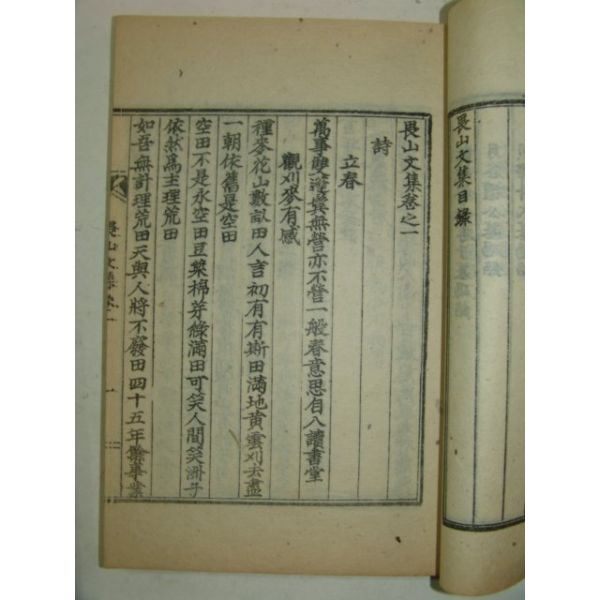 畏山文集目錄
畏山文集卷之一
詩
立春
萬事雙無營亦不營一般春意思自入讀書堂
觀刈麥有感
種麥花山數畝田人言初有有斯田滿地黃雲刈去盡
一朝依舊是空田
空田不是永空田豆葉棉芽綠滿田可笑人間笑洲子
依然爲主理荒田
如吾無計理荒田天與人將不廢田四十五年無事業
畏山文集卷之一
一